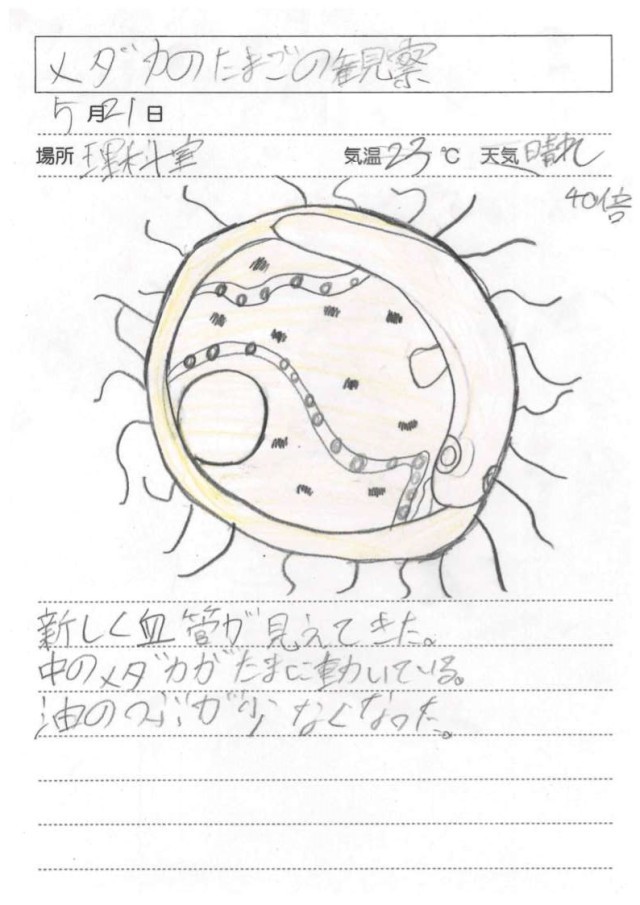 メダカのたまごの観察
5月21日
場所 理科室 気温23℃ 天気 晴れ
40倍
新しく血管が見えてきた。
中のメダカがたまに動いている。
油のつぶが少なくなった。